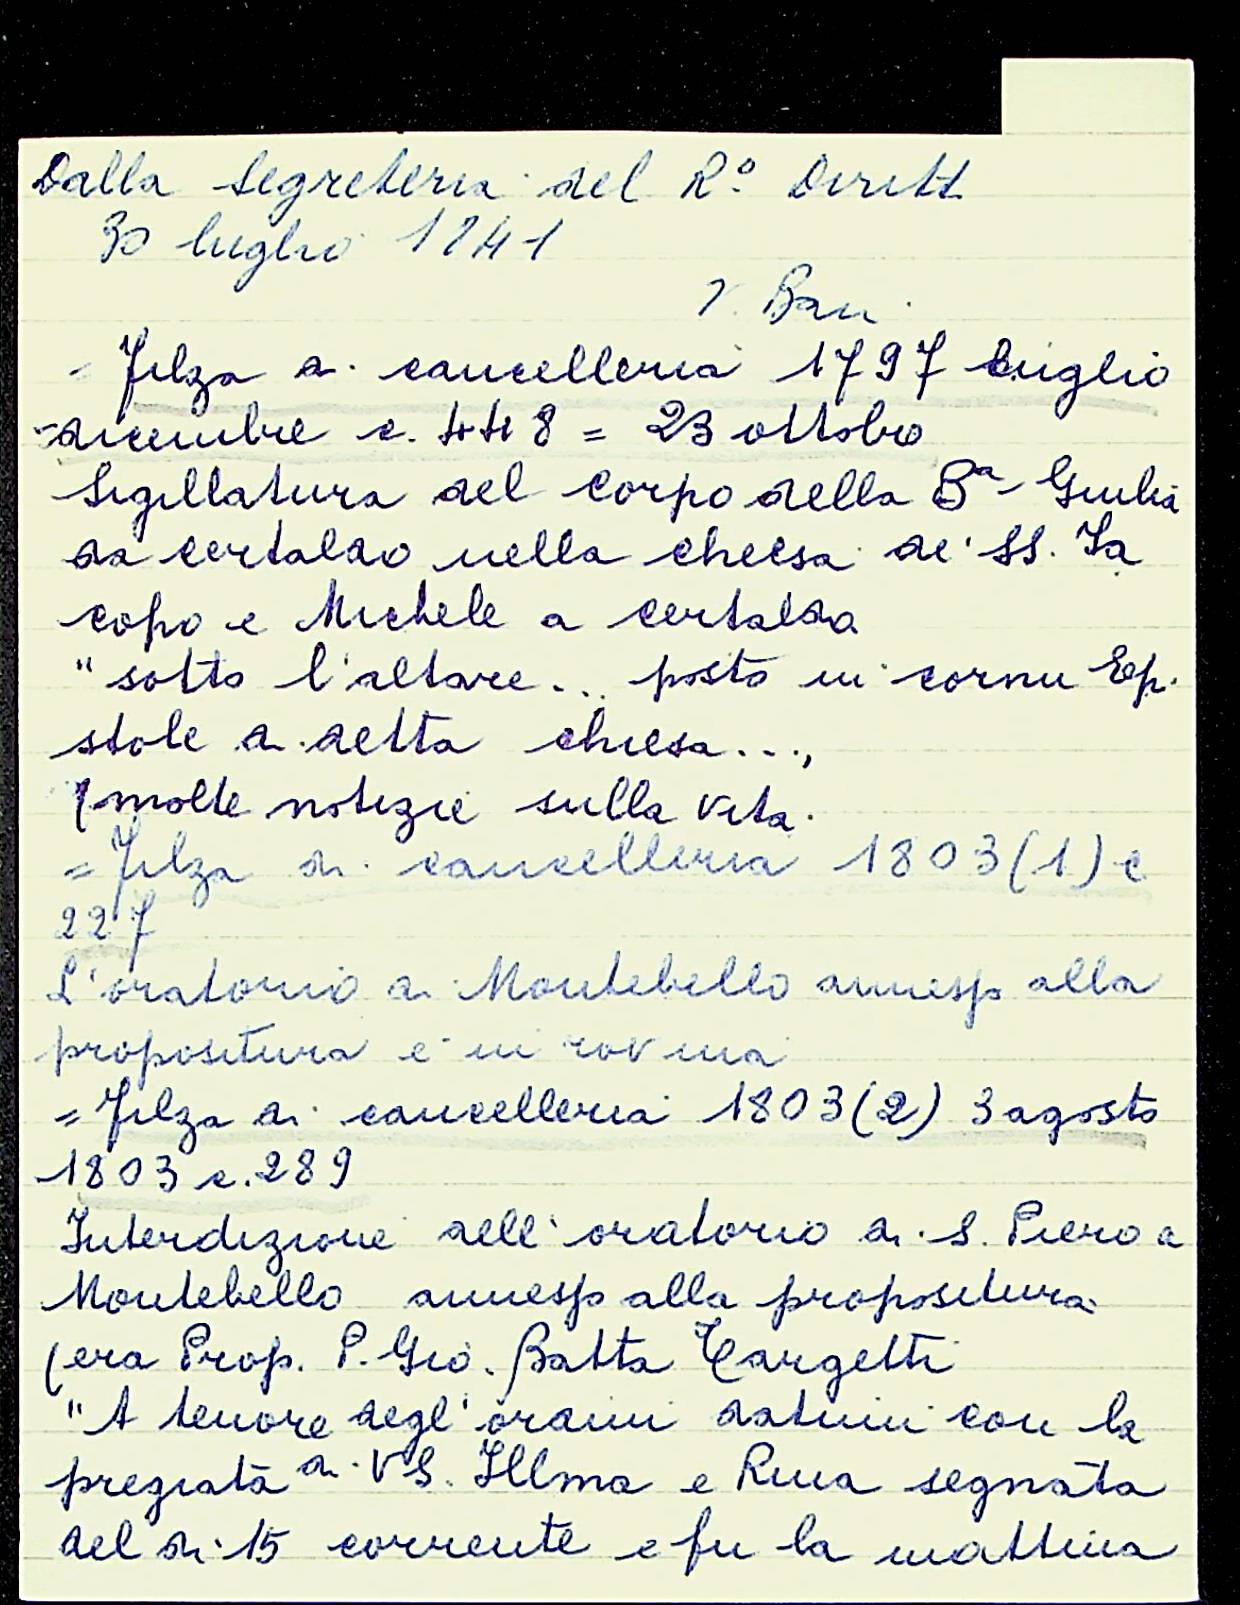 Dalla Segreteria del R.º Diritt
30 luglio 1841
V. Bari
= Filza di cancelleria 1797 luglio
-dicembre c. 448 = 23 ottobre
Sigillatura del corpo della Bª Giulia
da certaldo nella chiesa de' SS. Ja
copo e Michele a certaldo
"sotto l'altare... posto in cornu Epi
stole di detta chiesa...,
(molte notizie sulla vita.
= Filza di cancelleria 1803(1) c
227
L'oratorio di Montebello annesso alla
propositura è in rovina
= Filza di cancelleria 1803(2) 3 agosto
1803 c. 289
Interdizione dell'oratorio di S. Piero a
Montebello annesso alla propositura
(era Prop. P. Gio. Batta Targetti
"A tenore degl'ordini datimi con la
pregiata di VS. Illma e Rma segnata
del di 15 corrente e fu la mattina